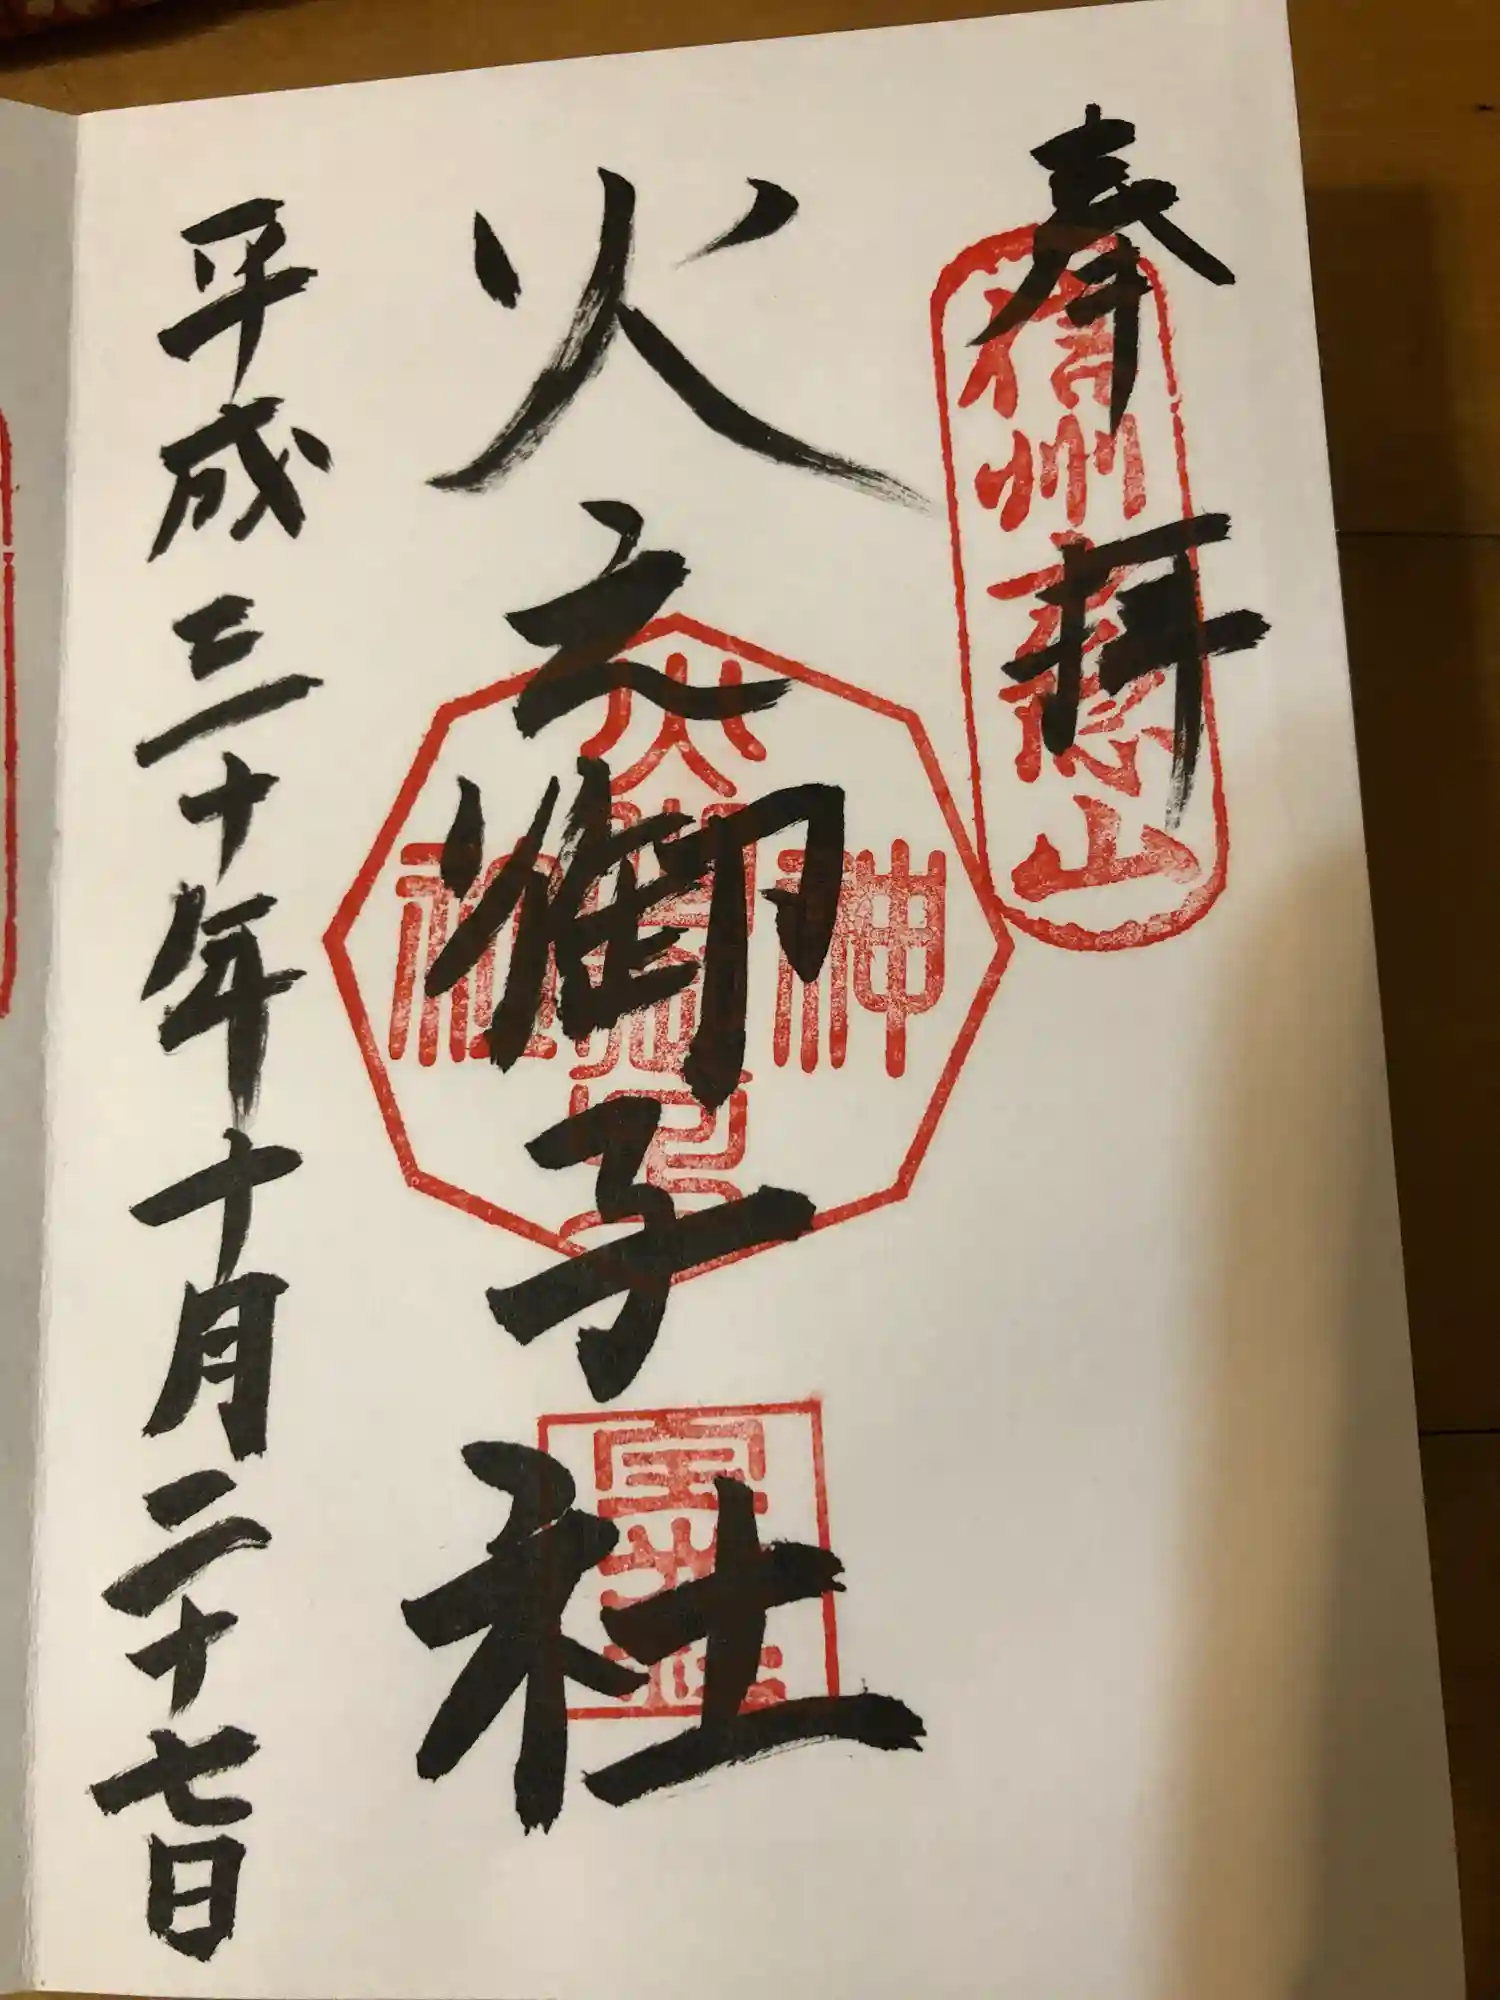 奉拝
信州戸隠山
火之御子社
平成三十年十月二十七日